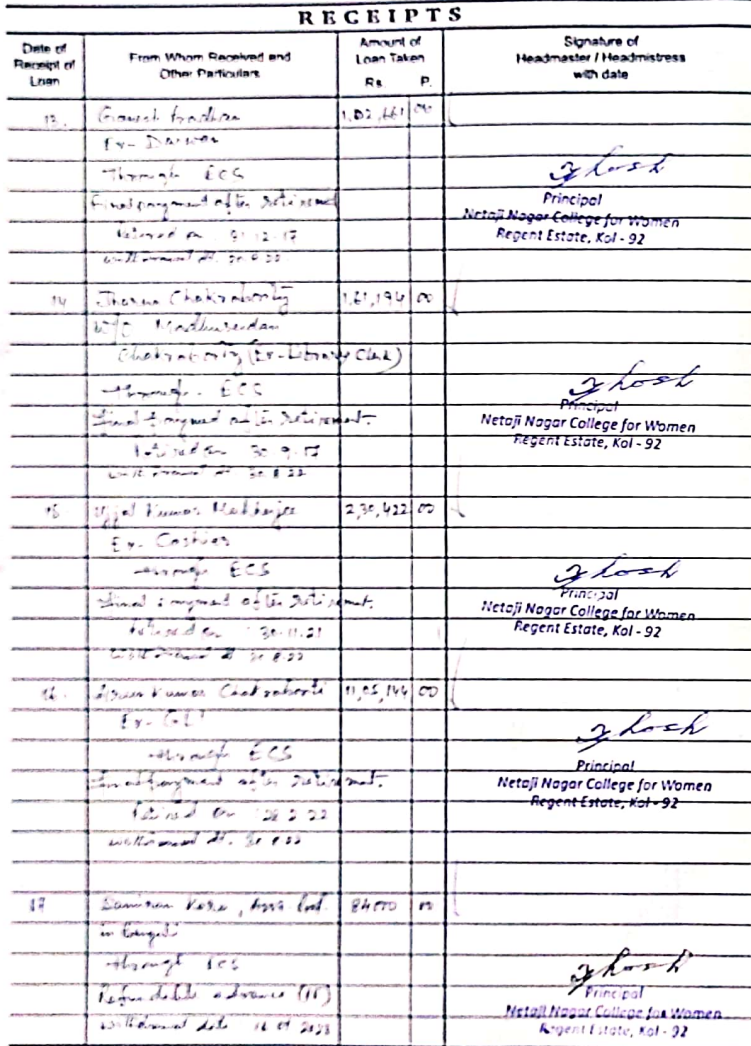 RECEIPTS
Date of Receipt of Loan
From Whom Received and Other Particulars
Amount of Loan Taken
Rs. P.
Signature of Headmaster / Headmistress with date
13. Ganesh Pradhan 1,02,661 00
Ex- Darwan
Through ECS
Final payment after retirement
Retired on 31-12-17
withdrawal dt. 30.8.22
Ghosh
Principal
Netaji Nagar College for Women
Regent Estate, Kol - 92
14 Jharna Chakraborty 1,61,194 00
W/O Madhusudan
Chakraborty (Ex-Library Clerk)
through ECS
Final payment after retirement.
Retired on 30-9-
withdrawal dt 30.8.22
Ghosh
Principal
Netaji Nagar College for Women
Regent Estate, Kol - 92
15 Ujjal Kumar Mukherjee 2,30,422 00
Ex- Cashier
through ECS
Final payment after retirement.
Retired on 30-11-21
withdrawal dt 30.8.22
Ghosh
Principal
Netaji Nagar College for Women
Regent Estate, Kol - 92
16. Kumar Chakraborti 11,05,144 00
Ex-
through ECS
Final payment after retirement.
Retired on 28.2.22
withdrawal dt. 30.8.22
Ghosh
Principal
Netaji Nagar College for Women
Regent Estate, Kol - 92
17 Samiran 84000 00
in Bengali
through ECS
Refundable advance
withdrawal date
Ghosh
Principal
Netaji Nagar College for Women
Regent Estate, Kol - 92